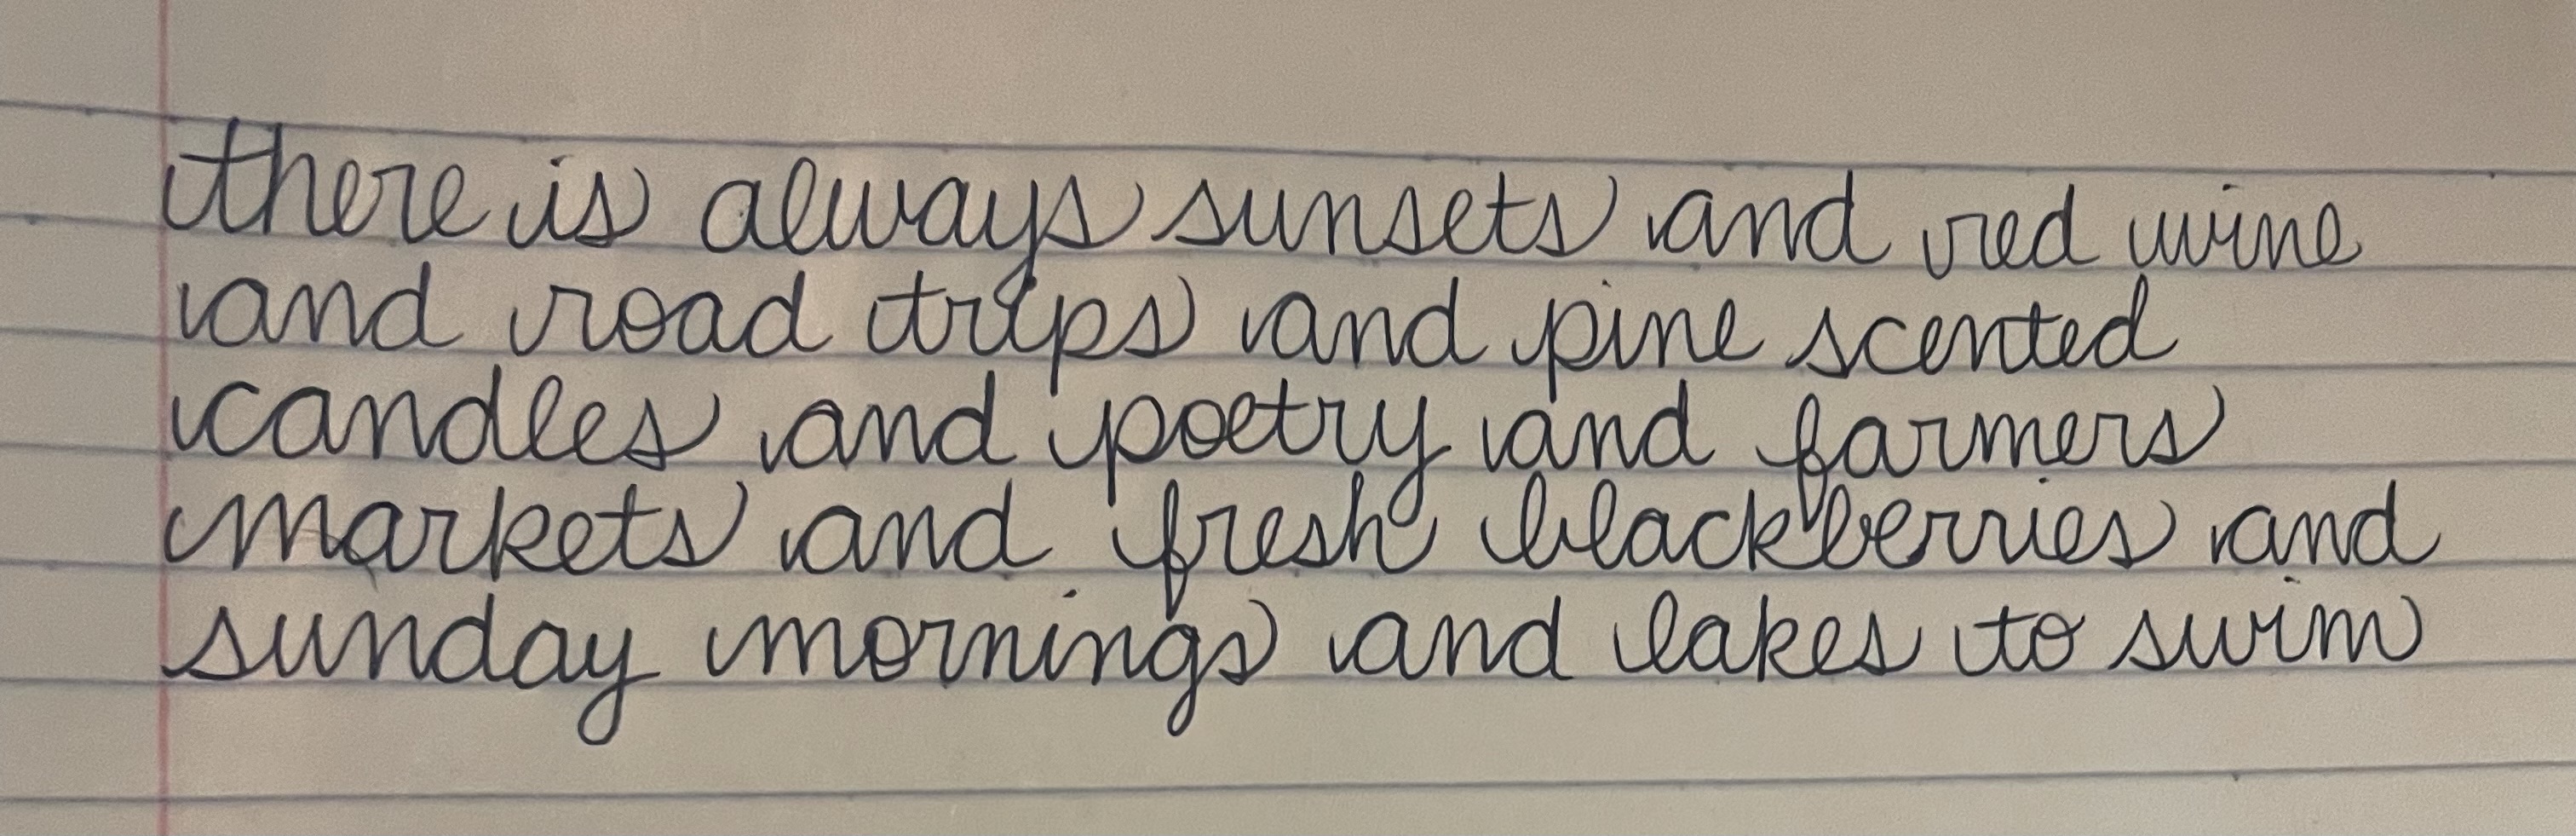 there is always sunsets and red wine
and road trips and pine scented
candles and poetry and farmers
markets and fresh blackberries and
sunday mornings and lakes to swim